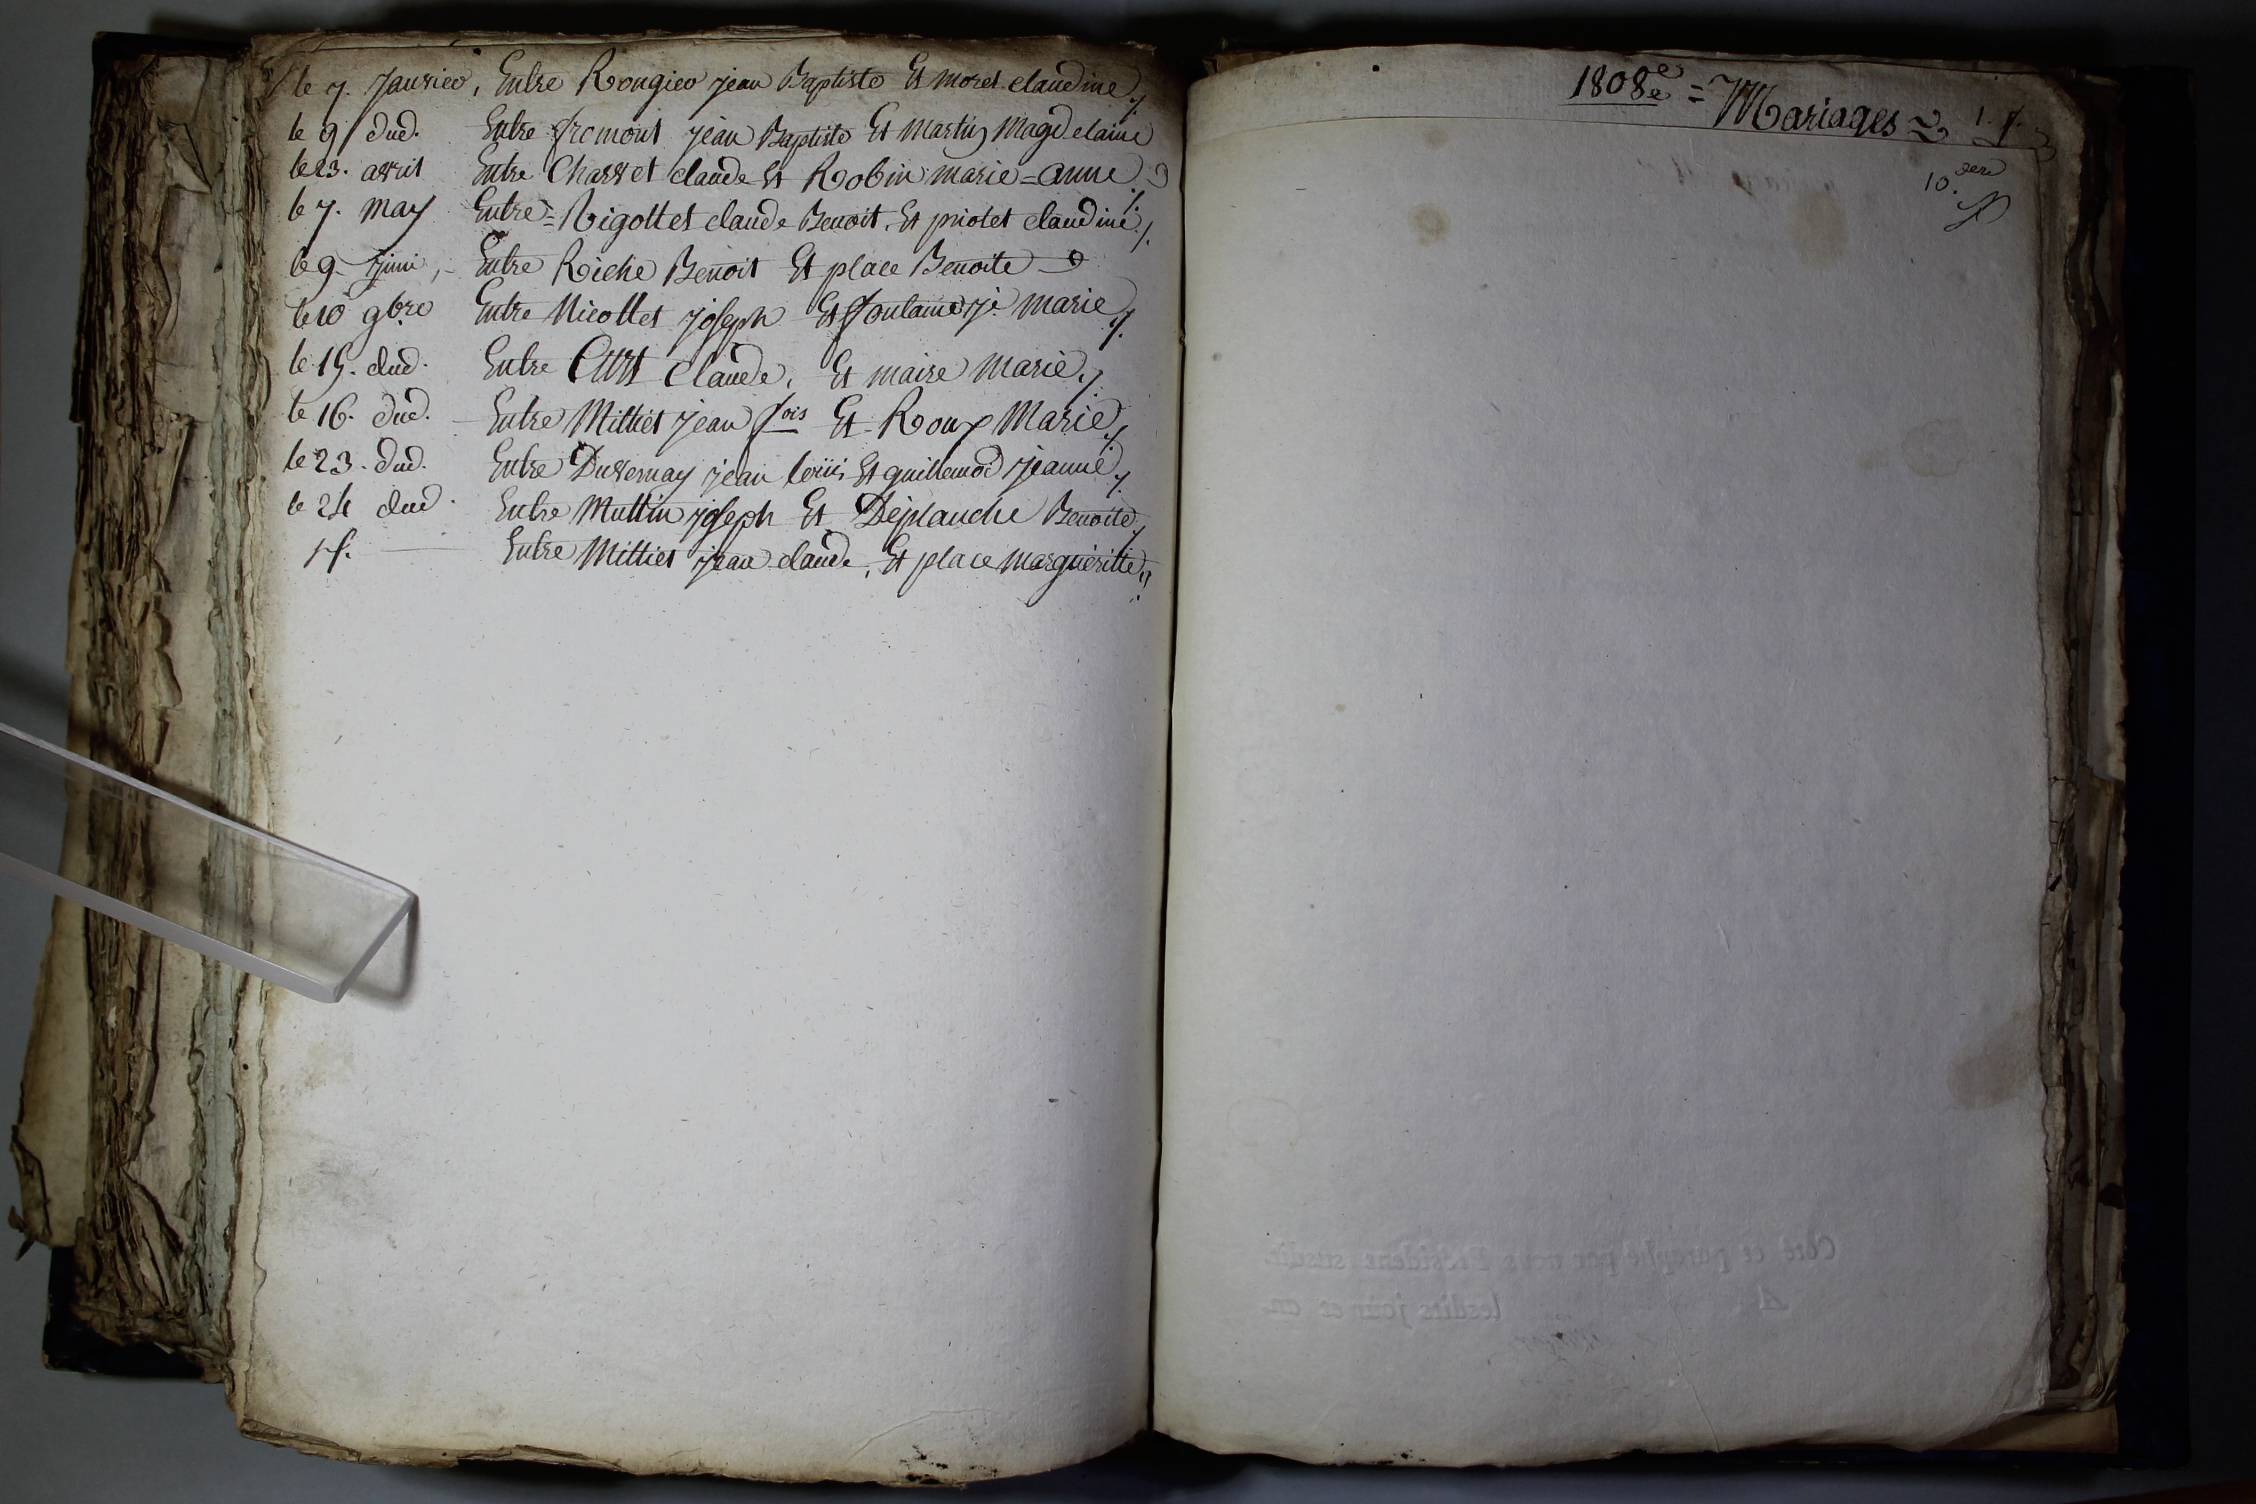 le 7. Janvier, Entre Rougier jean Baptiste Et moret claudine /.
le 9 dud. Entre fremont jean Baptiste Et Martin Magdelaine
le 23. avril Entre Charvet claude Et Robin marie = anne
le 7. may Entre = Rigottet claude Benoit. Et priolet claudine /.
le 9. Juin, Entre Riche Benoit Et place Benoite
le 10 9bre Entre Nicottet joseph Et fontaine je. marie /.
le 15. dud. Entre claude, Et maire Marie /.
le 16. dud. Entre Milliet jean fois Et Roux Marie /.
le 23. dud. Entre Duvernay jean loüis Et guillemod jeanne /.
le 24 dud. Entre Muttin joseph Et Déplanche Benoite /.
Entre Milliet jean claude, Et place margueritte
1808e = Mariages
10. der
Coté et paraphé par nous Président susdit.
A lesdits jour et an.